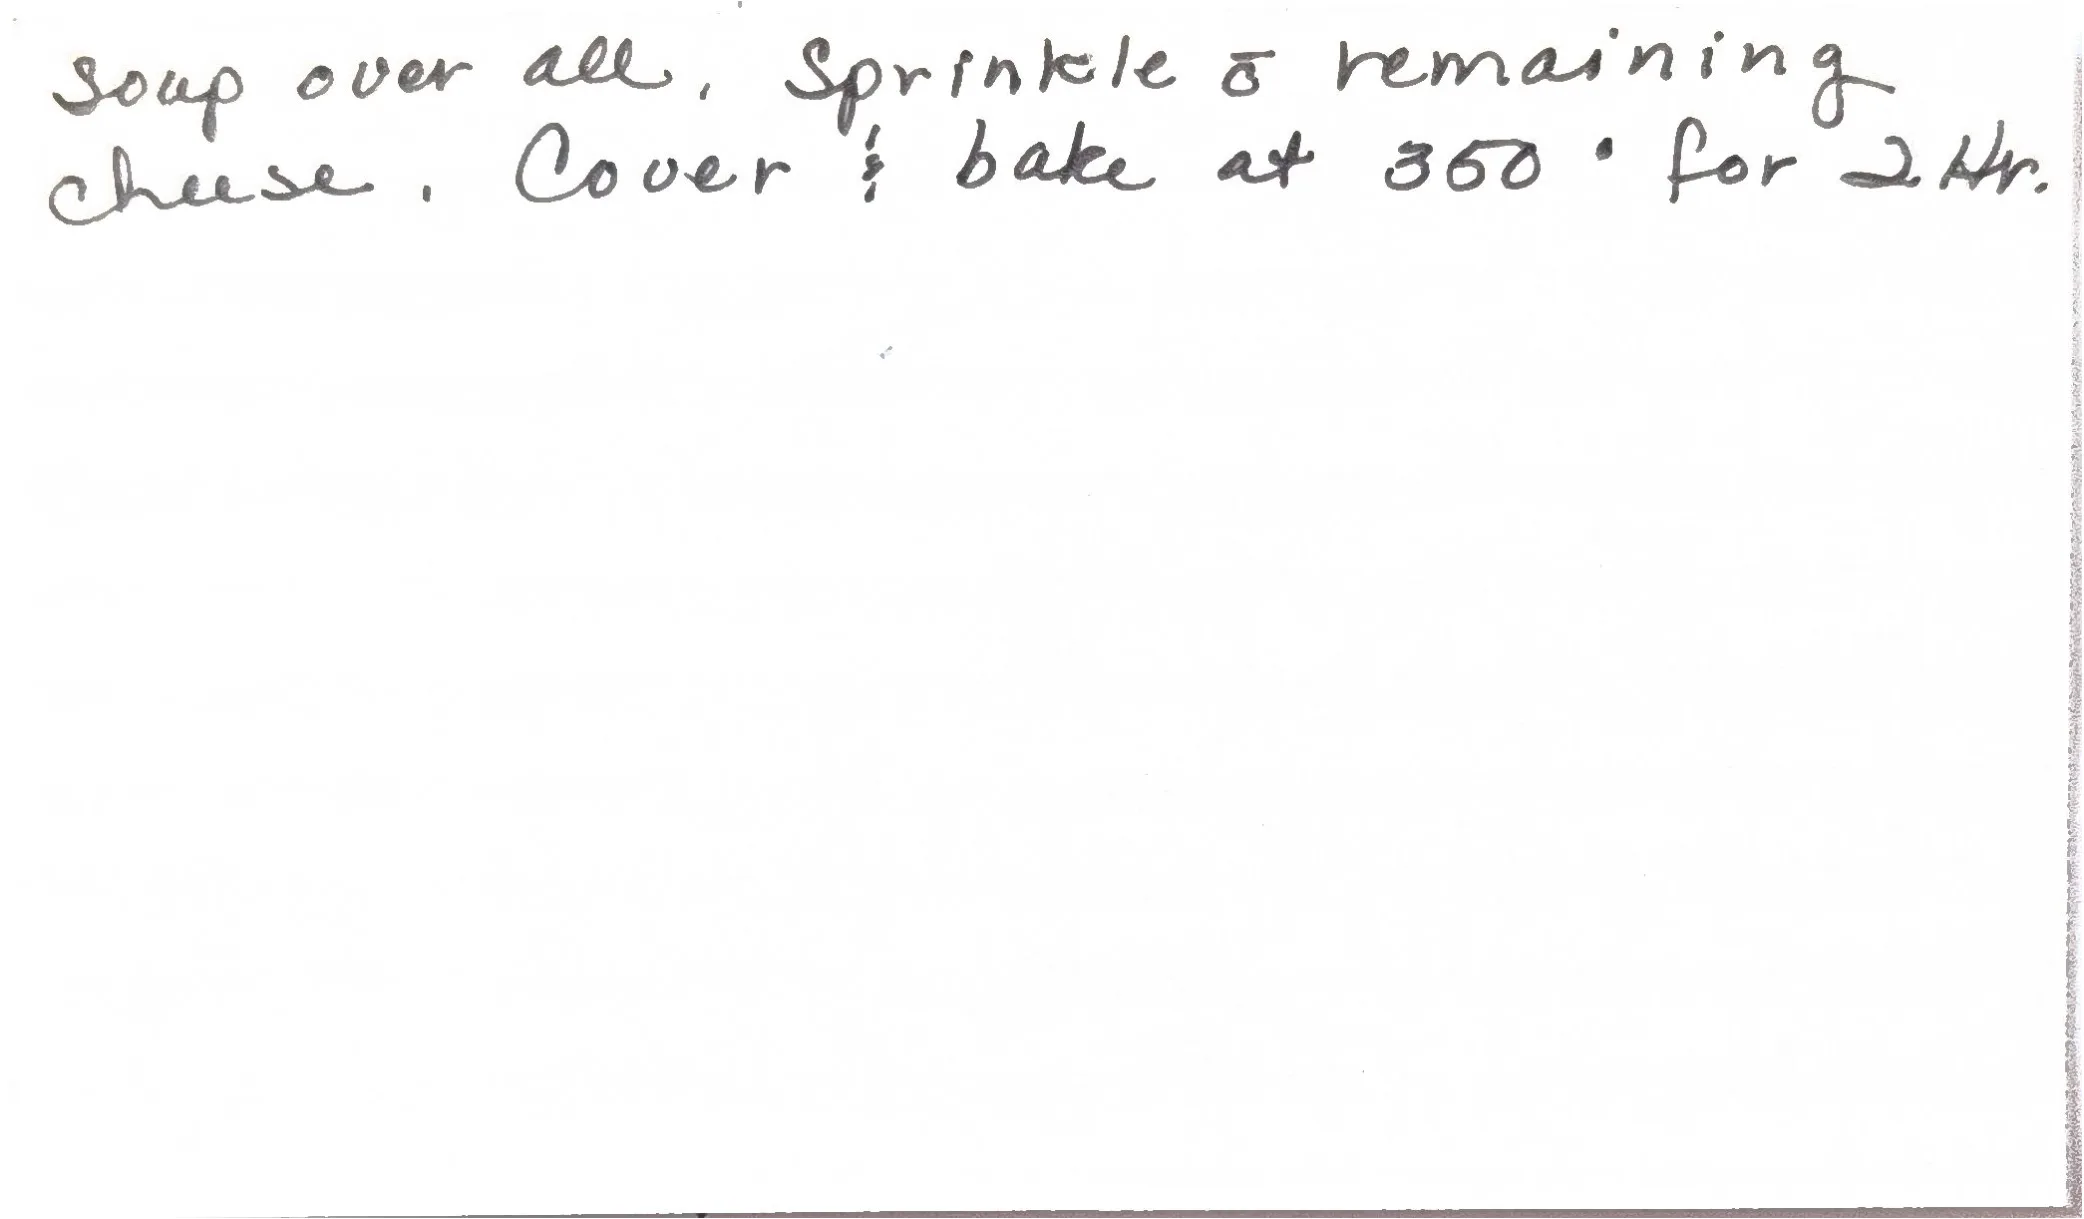 soup over all. Sprinkle c̄ remaining
cheese. Cover & bake at 350° for 2 Hr.